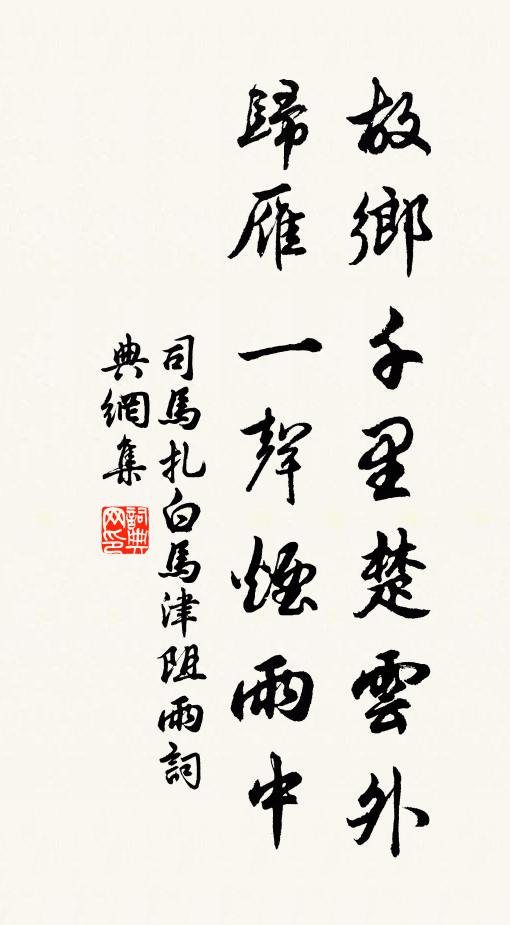 故鄉千里楚雲外
歸雁一聲煙雨中
司馬扎白馬津阻雨詞
典網集
詞典
网印